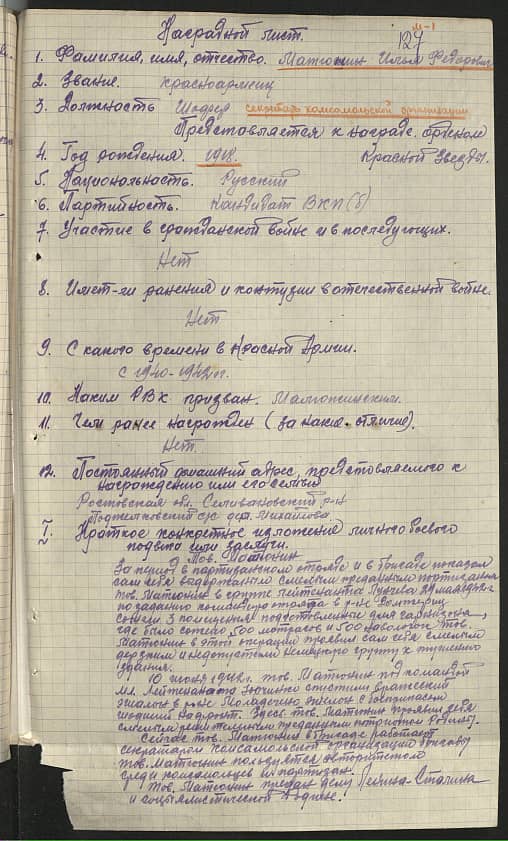 м-1
Наградной лист.
127
1. Фамилия, имя, отчество. Матюнин Илья Федорович
2. Звание. красноармеец
3. Должность секретарь комсомольской организации
Представляется к награде орденом
Красной Звезды.
4. Год рождения. 1918.
5. Национальность. Русский
6. Партийность. Кандидат ВКП(б)
7. Участие в гражданской войне и в последующих.
Нет
8. Имет-ли ранения и контузии в отечественной войне.
Нет
9. С какого времени в Красной Армии.
с 1940-1942 г.
10. Каким РВК призван.
11. Чем ранее награжден (за какие отличия).
Нет
12. Постоянный домашний адрес, представляемого к
награждению или его семьи
Ростовская обл. Селивановский р-н
с/с дер. Михайловка.
I. Краткое конкретное изложение личного боевого
подвига или заслуги.
Тов. Матюнин
За период в партизанском отряде и в бригаде показал
сам себя выдержанным смелым преданным партизаном
тов. Матюнин в группе лейтенанта
по заданию командира отряда в р-не
сожгли 3 помещения подготовленные для гарнизона,
где было сожжено 500 матрасов и 500 наволочек. Тов.
Матюнин в этой операции проявил сам себя смелым
дерзким и недопустил немецкую группу к тушению
здания.
10 июня 1942 г. тов. Матюнин под командой
мл. Лейтенанта спустили вражеский
эшалон в р-не Молодечно эшелон с боеприпасом
шодший на фронт. Здесь тов. Матюнин проявил себя
смелым решительным преданным патриотом Родины.
Сейчас тов. Матюнин в бригаде работает
секретарем комсомольской организации бригады
тов. Матюнин пользуется авторитетом
среди комсомольцев и партизан.
Тов. Матюнин предан делу Ленина-Сталина
и социалистической Родине.